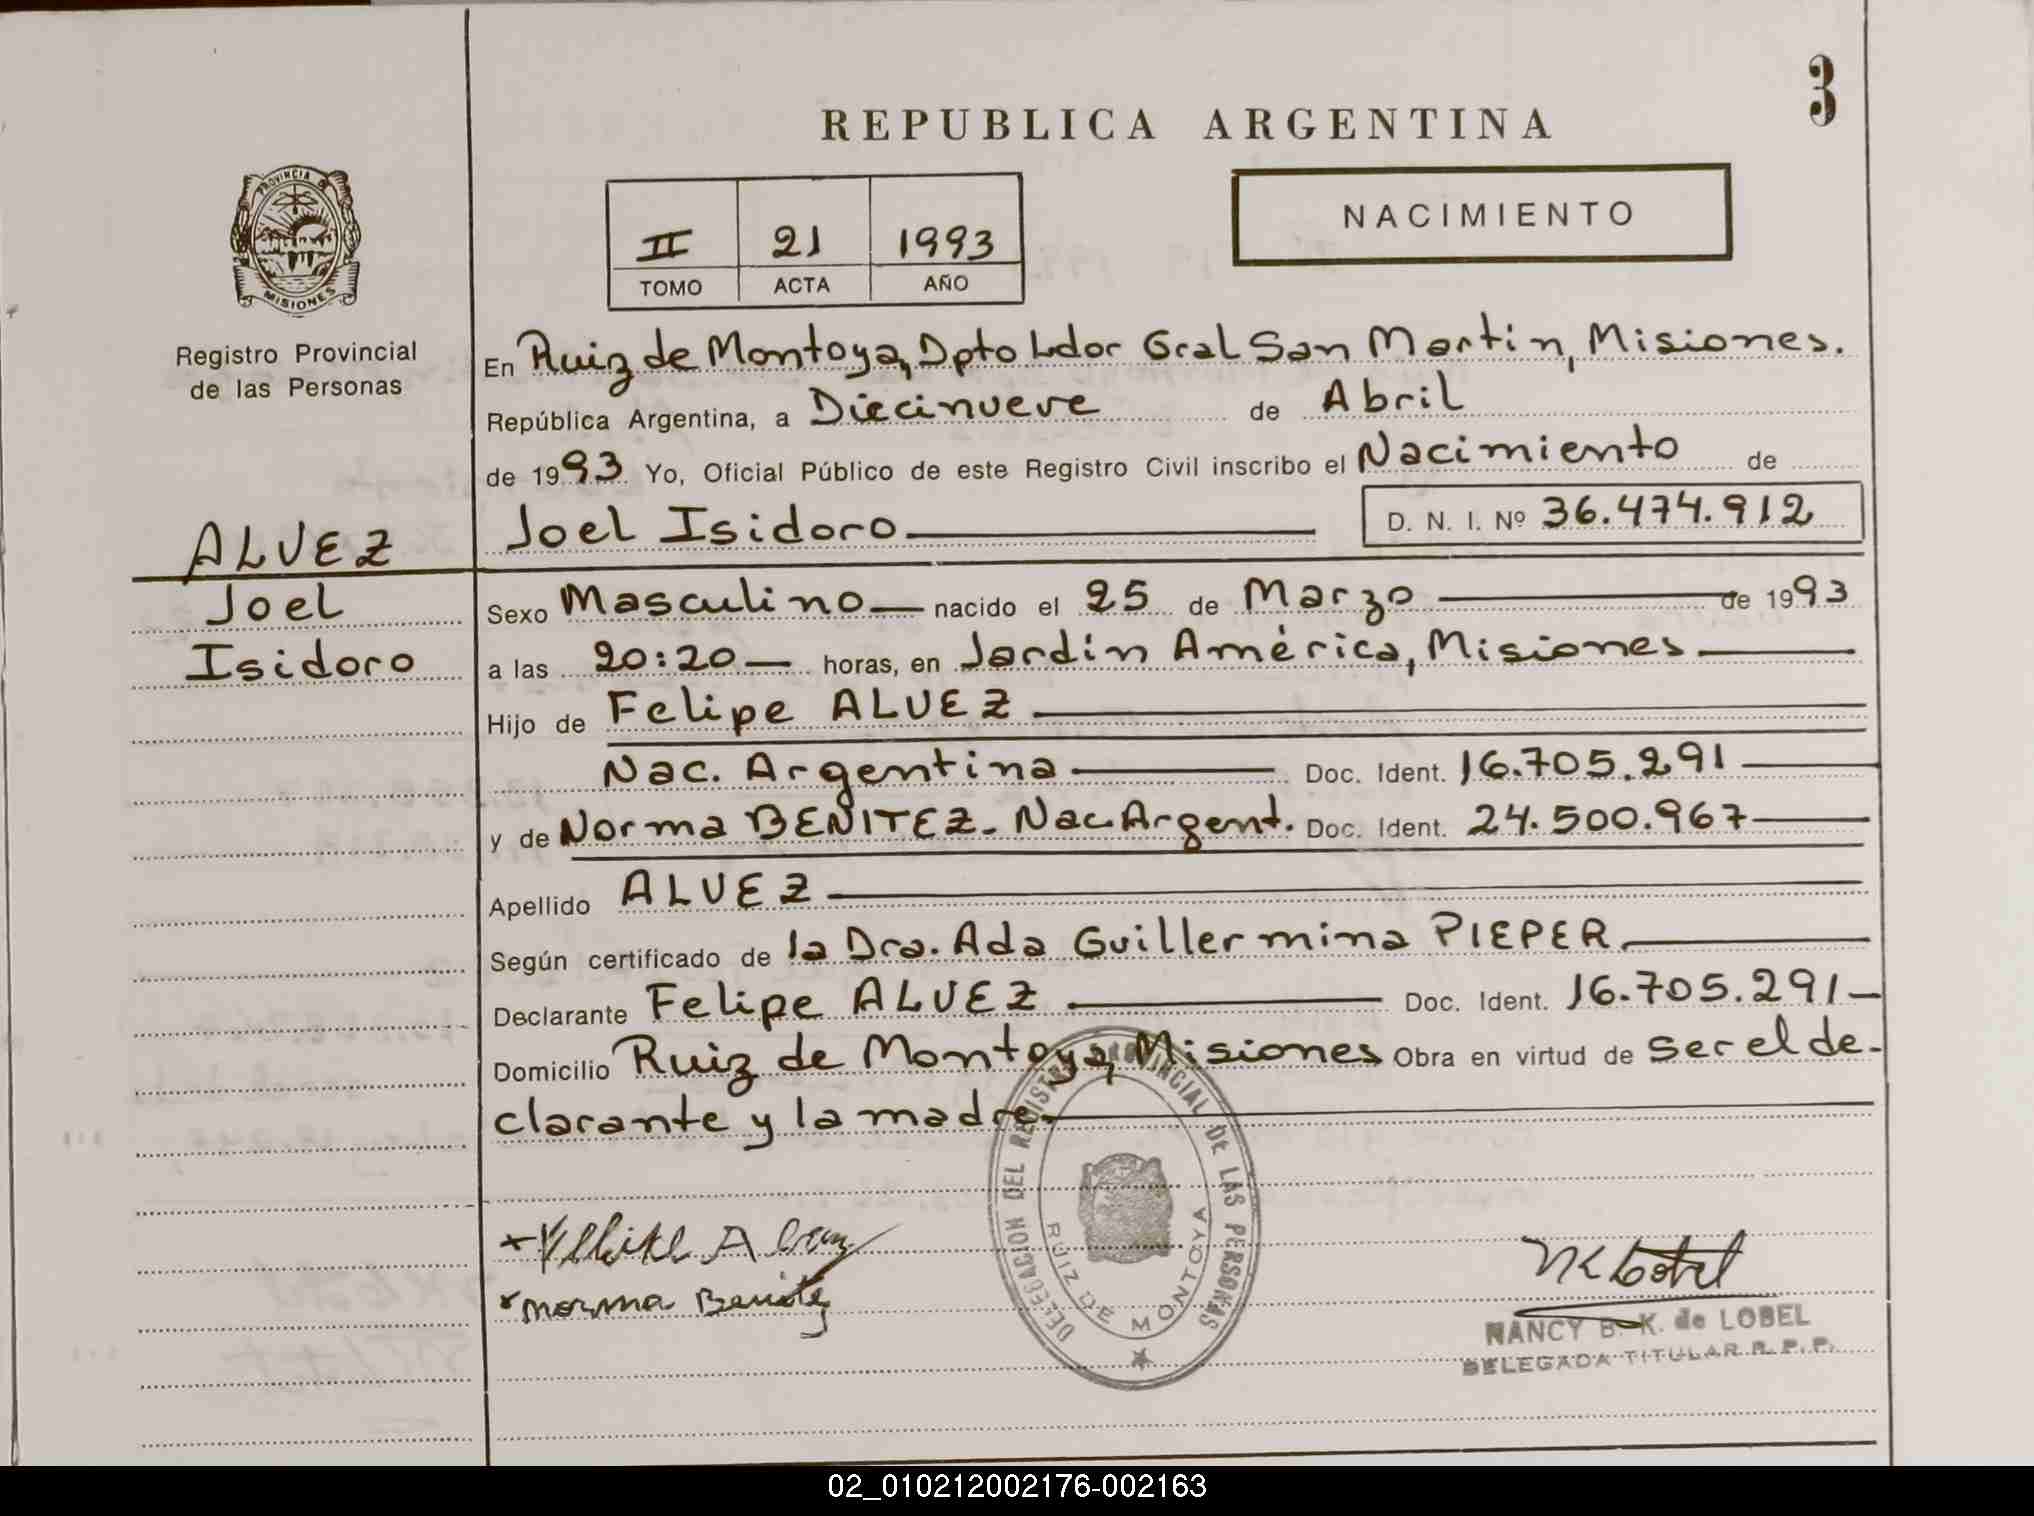 3
REPUBLICA ARGENTINA
PROVINCIA DE
MISIONES
Registro Provincial
de las Personas
II 21 1993
TOMO ACTA AÑO
NACIMIENTO
En Ruiz de Montoya, Dpto Ldor Gral San Martin, Misiones.
República Argentina, a Diecinueve de Abril
de 1993 Yo, Oficial Público de este Registro Civil inscribo el Nacimiento de
Joel Isidoro D. N. I. Nº 36.474.912
ALVEZ
Joel
Isidoro
Sexo Masculino nacido el 25 de Marzo de 1993
a las 20:20 horas, en Jardín América, Misiones
Hijo de Felipe ALVEZ
Nac. Argentina Doc. Ident. 16.705.291
y de Norma BENITEZ - Nac. Argent. Doc. Ident. 24.500.967
Apellido ALVEZ
Según certificado de la Dra. Ada Guillermina PIEPER
Declarante Felipe ALVEZ Doc. Ident. 16.705.291
Domicilio Ruiz de Montoya, Misiones Obra en virtud de ser el de-
clarante y la madre.
DELEGACION DEL REGISTRO PROVINCIAL DE LAS PERSONAS
RUIZ DE MONTOYA
Norma Benitez
NANCY B. K. de LOBEL
DELEGADA TITULAR R. P. P.
02_010212002176-002163